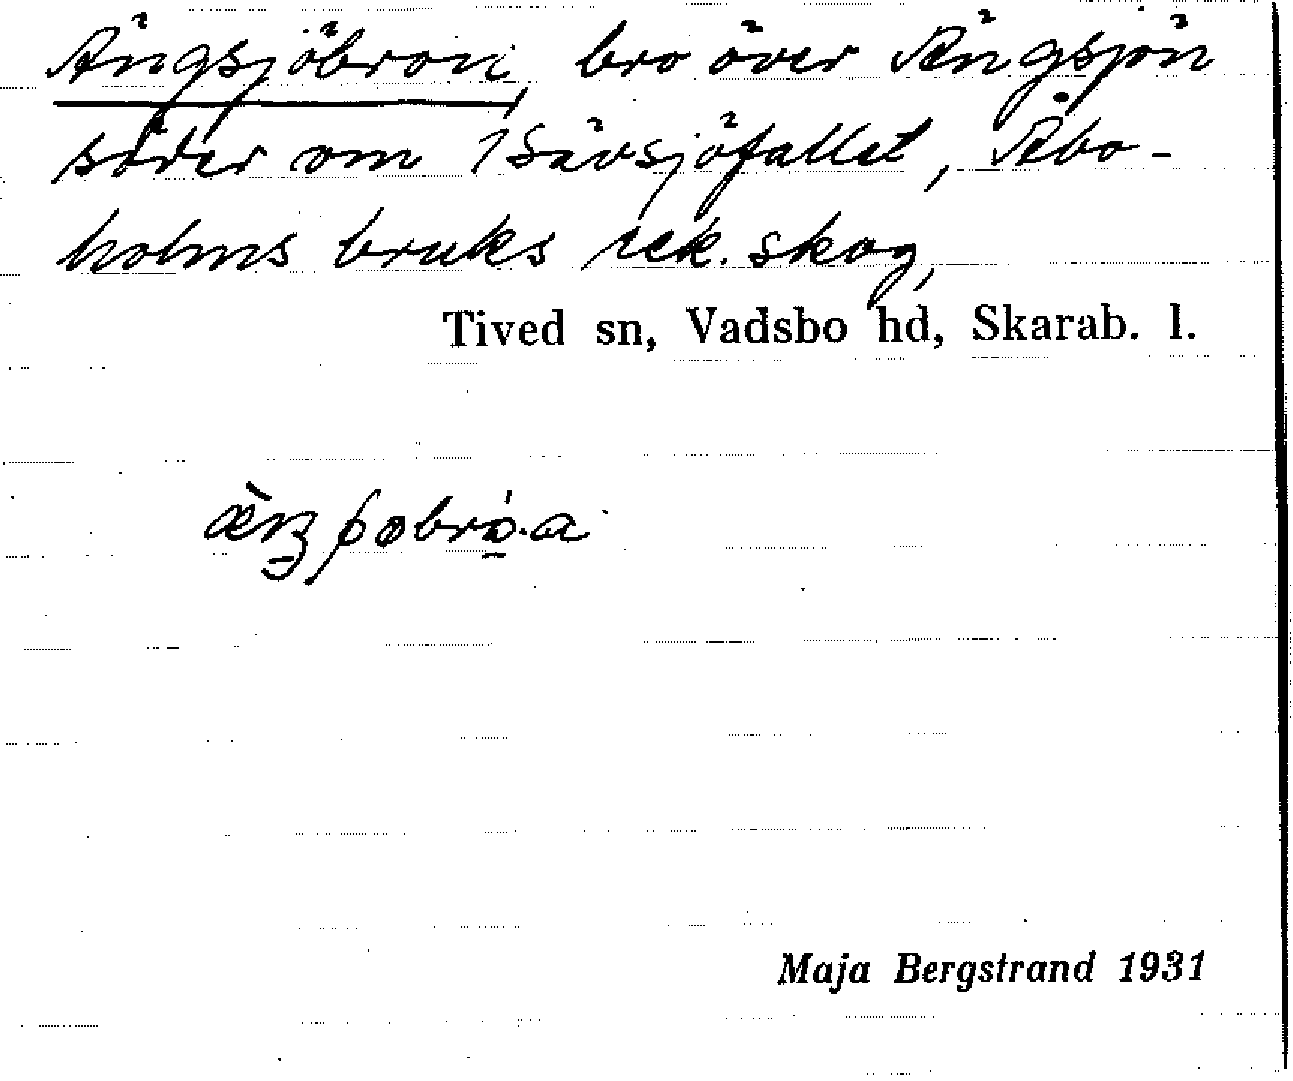 Ängsjöbron, bro över Ängsjön
söder om 1 Sävsjöfallet, Åbo-
holms bruks rek. skog,
Tived sn, Vadsbo hd, Skarab. l.
Maja Bergstrand 1931